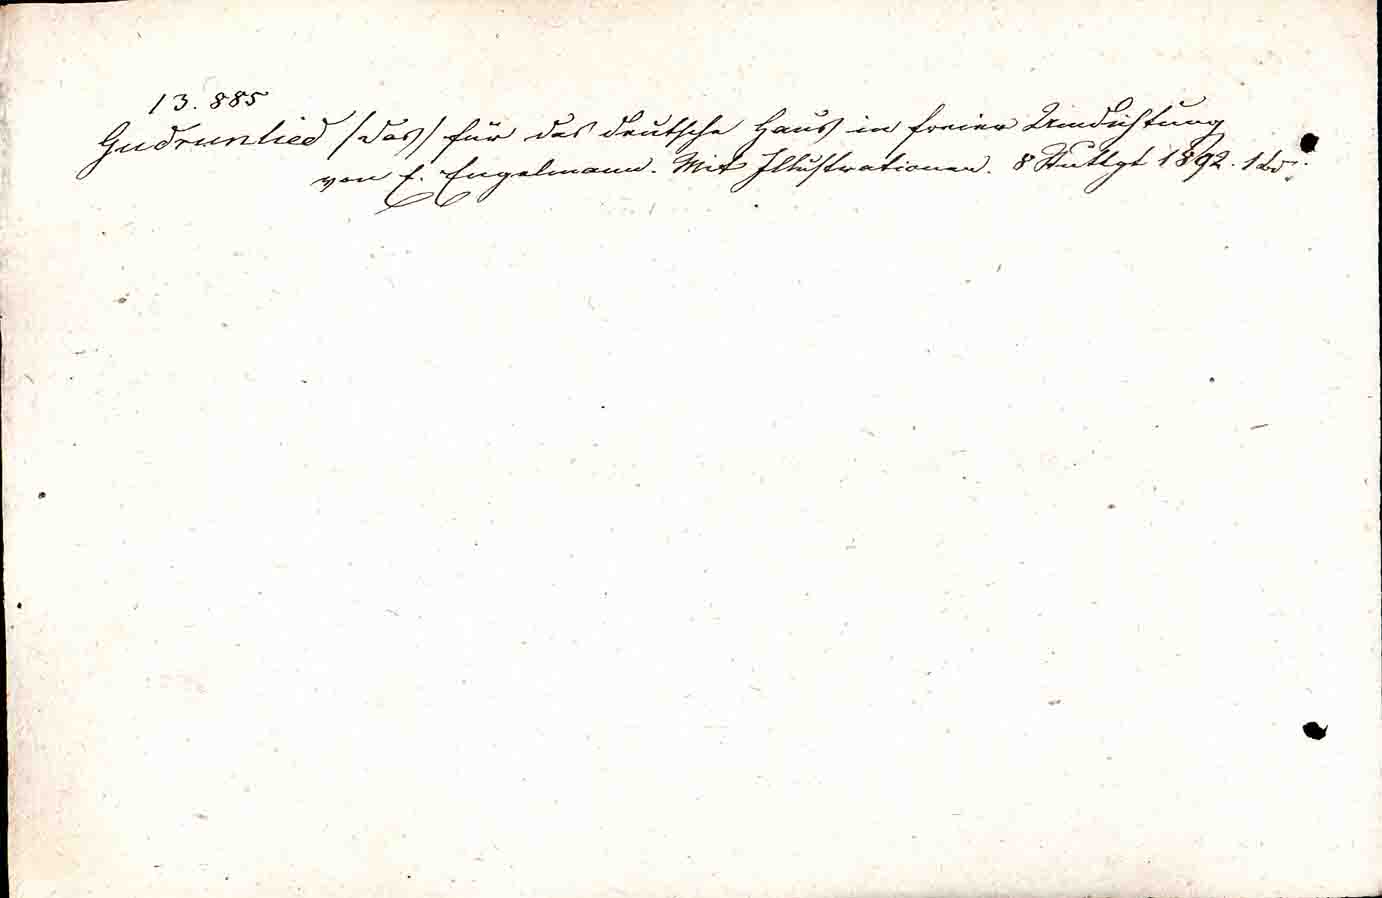 13.885
Gudrunlied /:das:/ für das deutsche Haus in freier Umdichtung
von E. Engelmann. Mit Illustrationen. 8 Stuttgt 1892. 1 Bd.